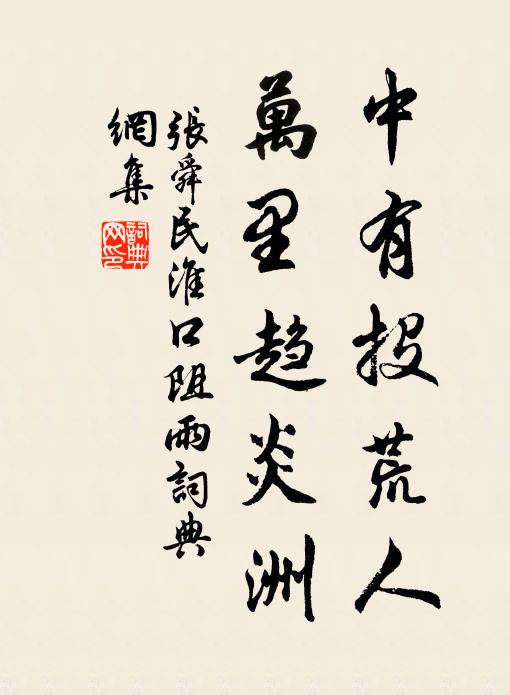 中有投荒人
萬里趨炎洲
張舜民淮口阻雨詞典
網集
詞典
网印